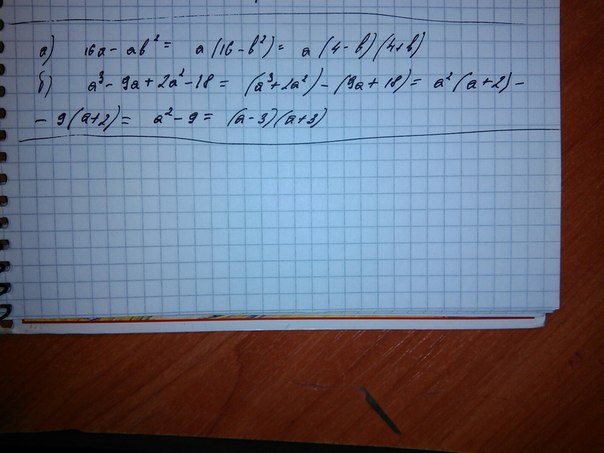 а) 16a - ab² = a(16 - b²) = a(4 - b)(4 + b)
б) a³ - 9a + 2a² - 18 = (a³ + 2a²) - (9a + 18) = a²(a + 2) -
- 9(a + 2) = a² - 9 = (a - 3)(a + 3)